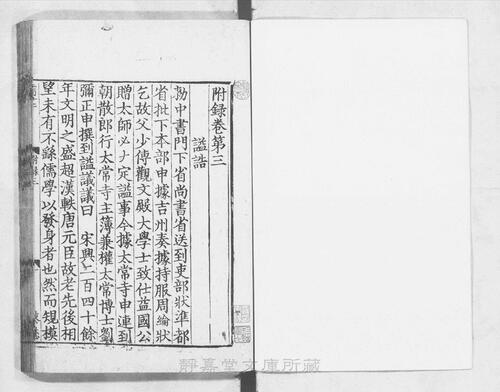 附録卷第三
謚誥
勑中書門下省尚書省送到吏部狀準都
省批下本部申據吉州奏據持服周綸狀
乞故父少傳觀文殿大學士致仕益國公
贈太師必大定謚事今據太常寺申連到
朝散郎行太常寺主簿兼權太常博士劉
彌正申撰到謚議議曰 宋興二百四十餘
年文明之盛超漢軼唐元臣故老先後相
望未有不繇儒學以發身者也然而規模
靜嘉堂文庫所藏